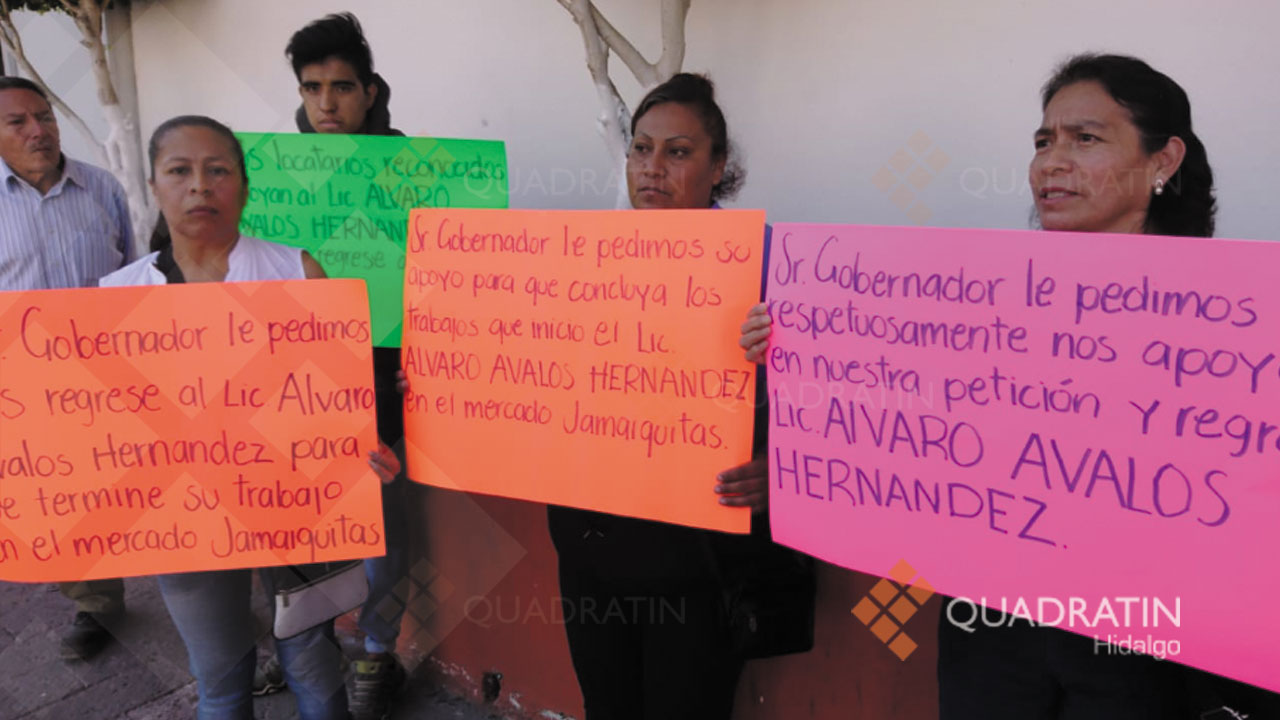 s locatarios reconocidos
oyan al Lic ALVARO
VALOS HERNAN
regrese a
. Gobernador le pedimos
s regrese al Lic Alvaro
valos Hernandez para
e termine su trabajo
n el mercado Jamaiquitas
Sr. Gobernador le pedimos su
apoyo para que concluya los
trabajos que inicio el Lic.
ALVARO AVALOS HERNANDEZ
en el mercado Jamaiquitas.
Sr. Gobernador le pedimos
respetuosamente nos apoye
en nuestra petición y regre
Lic. ALVARO AVALOS
HERNANDEZ.
QUADRATIN
Hidalgo
QUADRATIN
QUADRATIN
QUADRATIN
QUADRATIN